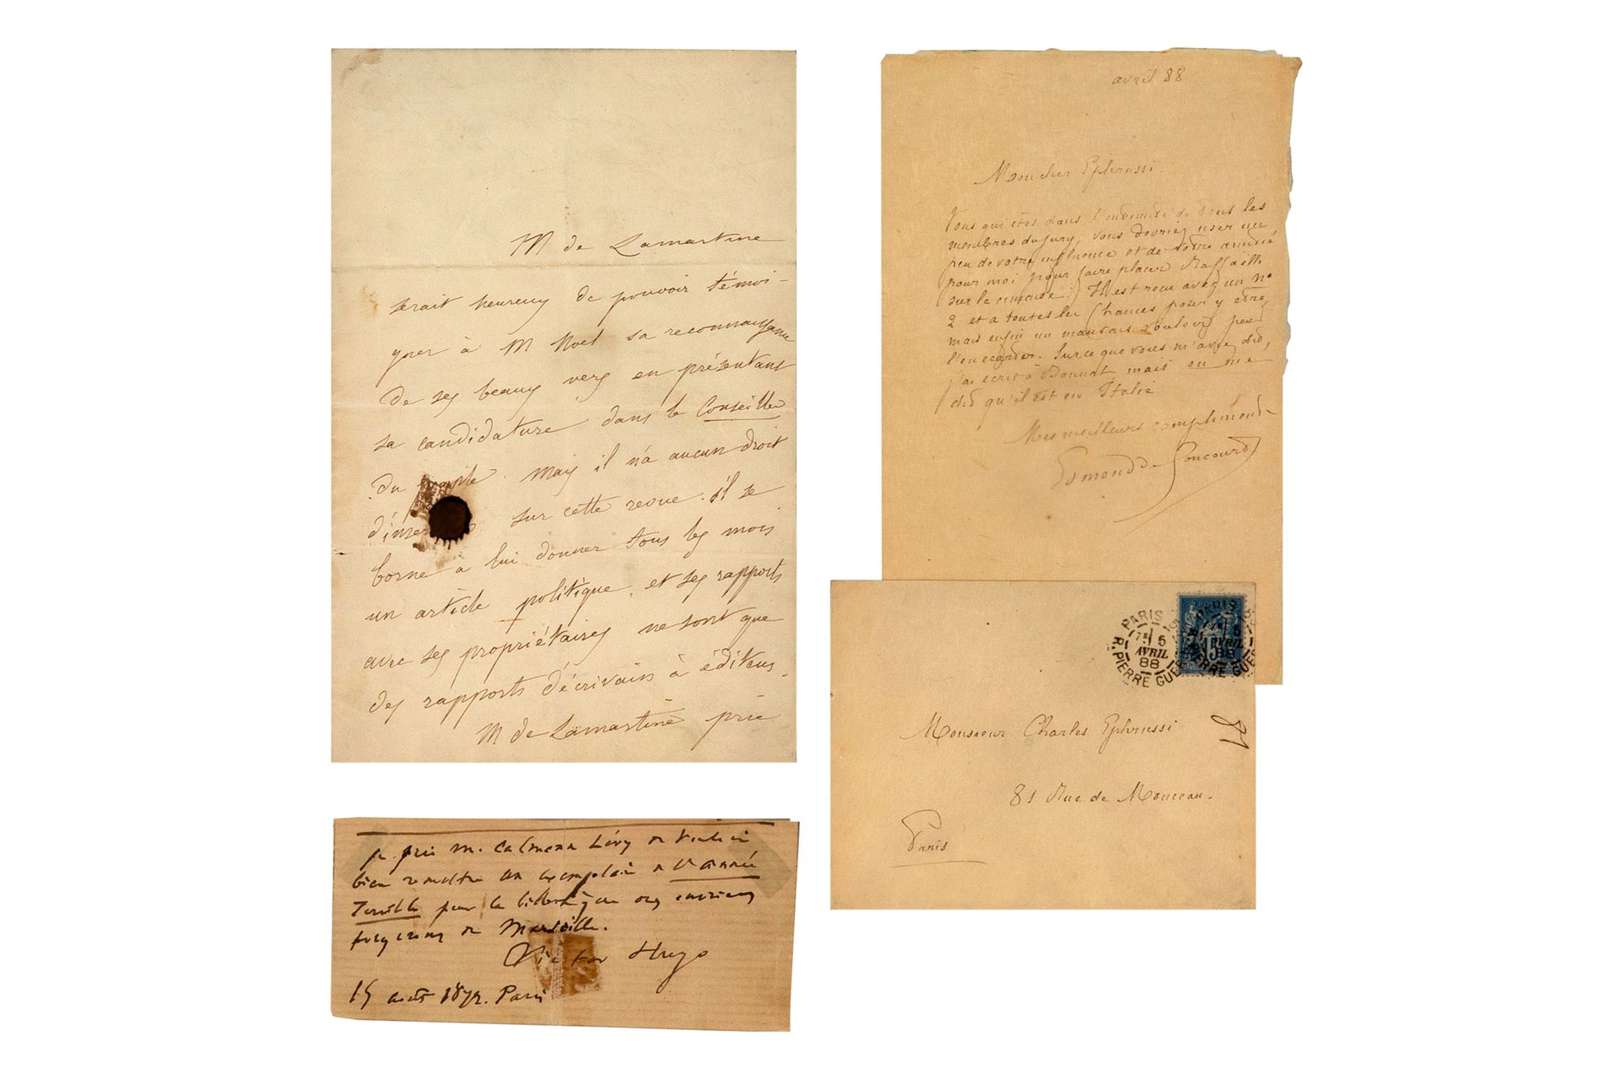 M de Lamartine
serait heureux de pouvoir témoi-
gner à M Noel sa reconnaissance
de ses beaux vers en présentant
sa candidature dans le Conseiller
du peuple. Mais il n'a aucun droit
sur cette revue. il se
borne à lui donner tous les mois
un article politique. et ses rapports
avec ses propriétaires ne sont que
des rapports d'écrivain à éditeurs.
M de Lamartine prie
avril 88
Mon cher Ephrussi
Vous qui êtes dans l'intimité de tous les
membres du jury, vous devriez user un
peu de votre influence et de votre amitié
pour moi pour faire placer Raffaelli
sur la cimaise. Il est reçu avec un n°
2 et a toutes les chances pour y être,
mais enfin un mauvais vouloir peut
l'en écarter. Sur ce que vous m'avez dit,
j'ai écrit à Bonnat mais on me
dit qu'il est en Italie
Mes meilleurs compliments
Edmond de Goncourt
PARIS
5
AVRIL
88
R. PIERRE GUER
PARIS
15
AVRIL
88
PIERRE GUER
Monsieur Charles Ephrussi
81 Rue de Monceau.
Paris
81
je prie M. Calmann Lévy de vouloir
bien remettre un exemplaire de l'Année
Terrible pour la bibliothèque des
de Marseille.
Victor Hugo
15 août 1872. Paris